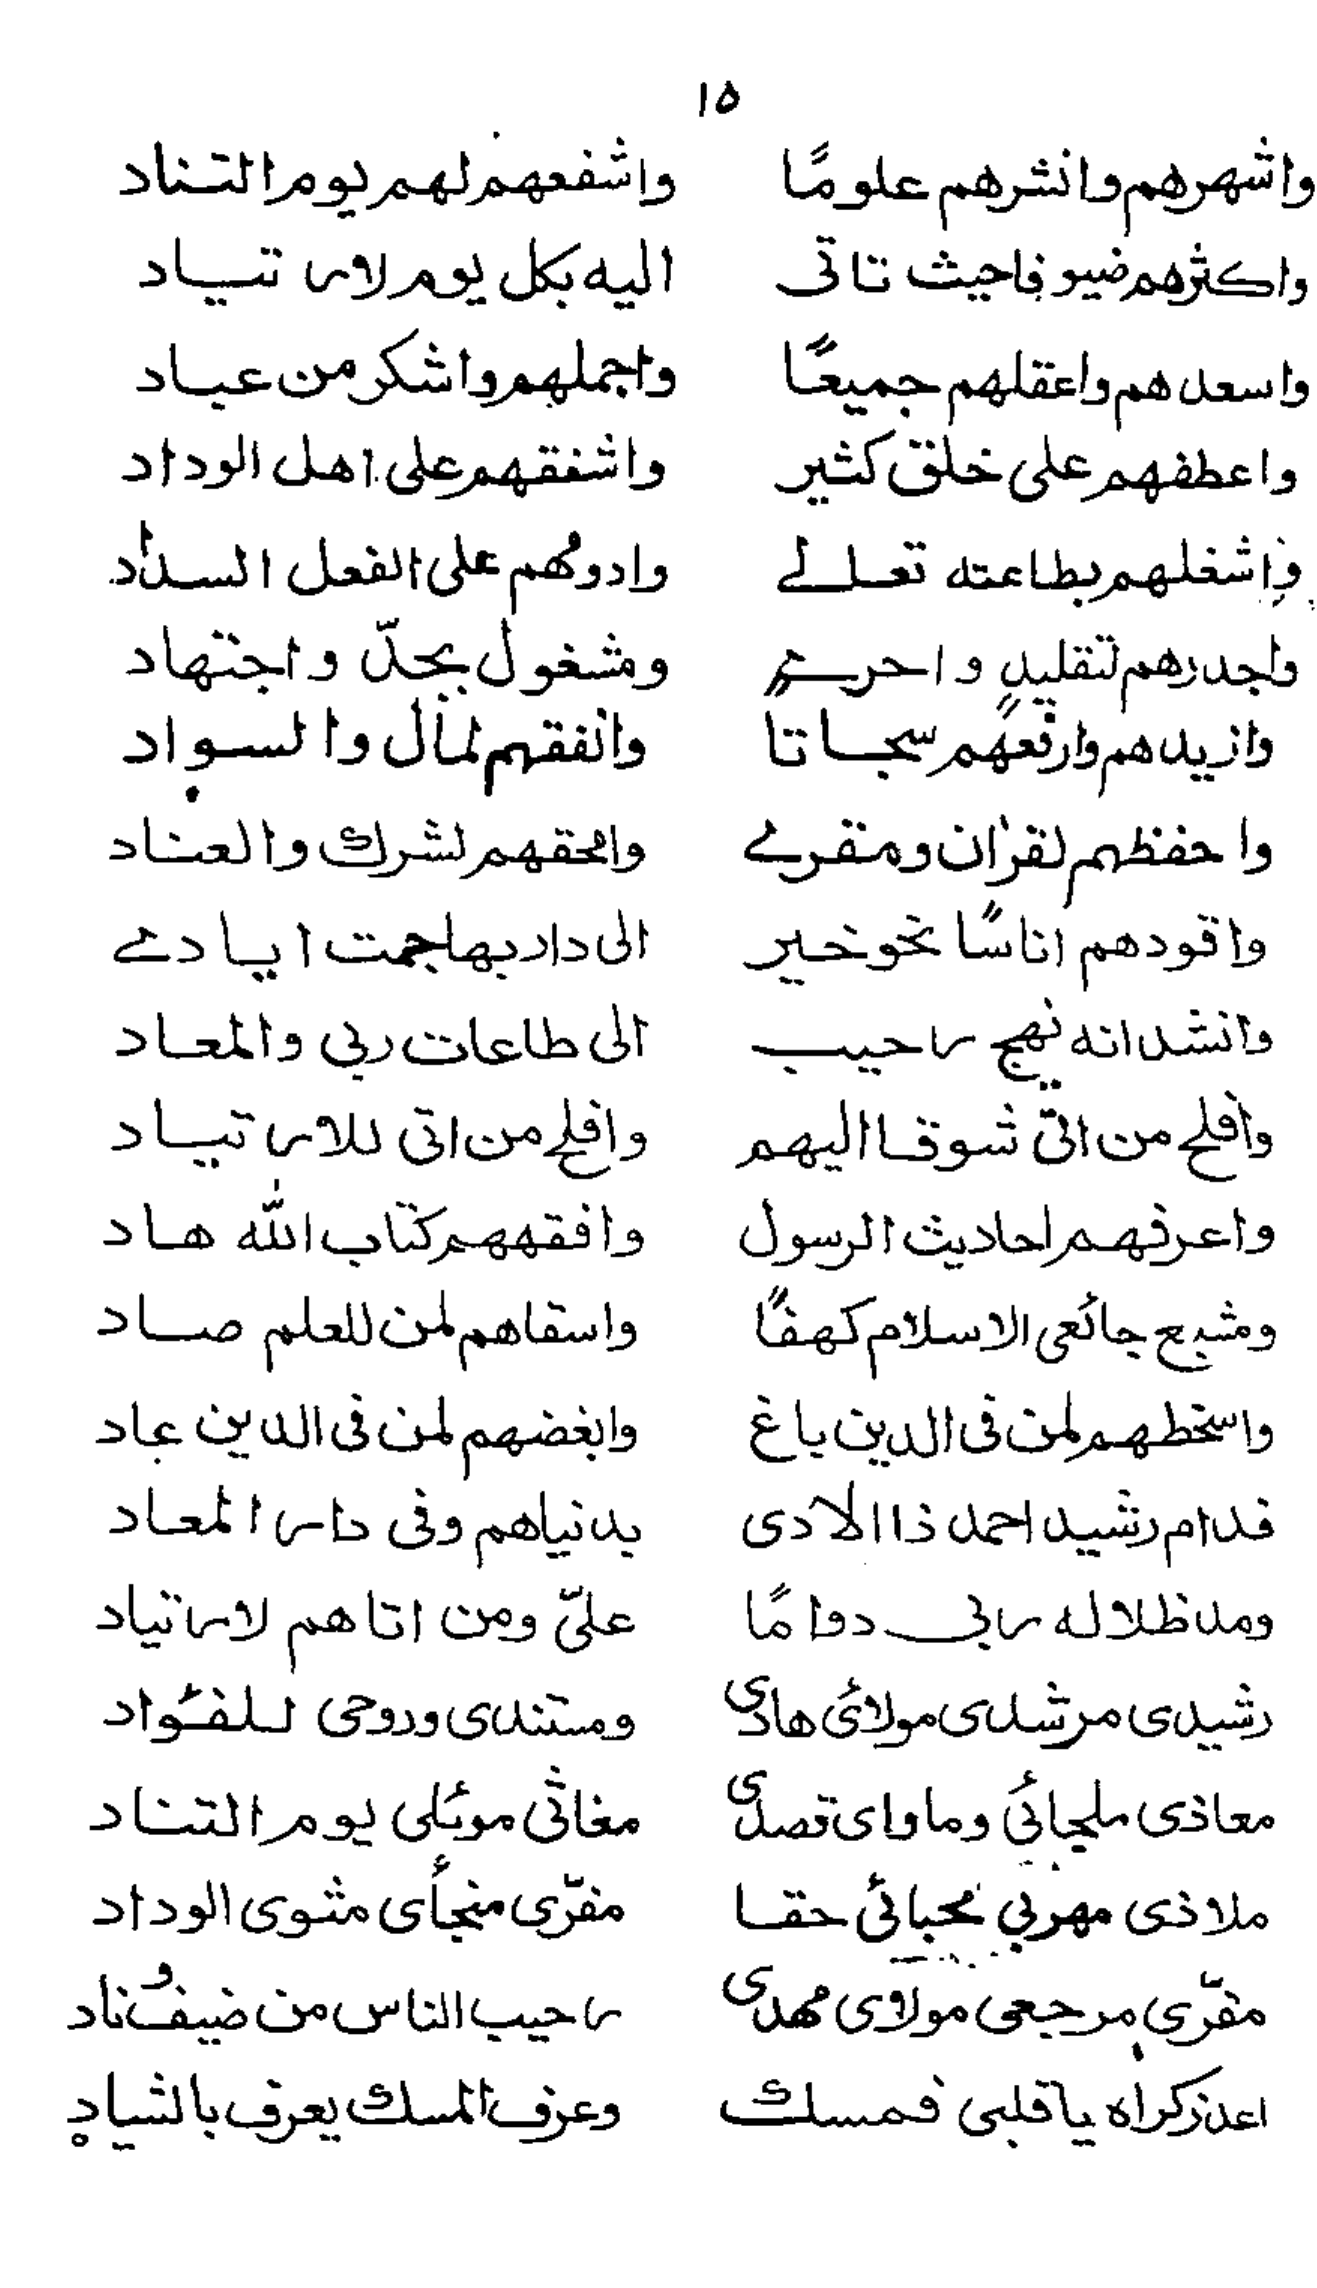 ۱۵
واشهرهم وانشرهم علومًا واشفعهم لهم يوم التناد
واكثرهم ضيوفا حيث تاتى اليه بكل يوم لارتياد
واسعدهم واعقلهم جميعًا واجملهم واشكر من عباد
واعطفهم على خلق كثير واشفقهم على اهل الوداد
واشغلهم بطاعته تعالے وادومُهم على الفعل السداد
واجدرهم لتقليدٍ واحرے ومشغول بجدّ واجتهاد
وازيدهم وارفعهم سجاتا وانفقهم لمال والسواد
واحفظهم لقراٰن ومقرے وامحقهم لشرك والعناد
واقودهم اناسًا نحو خير الى دار بها جمت ايادے
وانشدانه نهج رحيب الى طاعات ربى والمعاد
وأفلح من اتى شوقا اليهم وافلح من اتى للارتياد
واعرفهم احاديث الرسول وافقههم كتاب الله هاد
ومشبع جائعى الاسلام كهفًا واسقاهم لمن للعلم صاد
واسخطهم لمن فى الدين باغ وابغضهم لمن فى الدين عاد
فدام رشيد احمد ذا الادى بدنياهم وفى دار المعاد
ومد ظلاله ربى دوامًا علىّ ومن اتاهم لارتياد
رشيدى مرشدى مولائى هادى ومستندى وروحى للفؤاد
معاذى ملجائى وماواى قصدى مغاثى موئلى يوم التناد
ملاذى مهربى محبائى حقا مفرّى منجأى مثوى الوداد
مفرّى مرجعى مولاى مهدى رحيب الناس من ضيفٌ وناد
اعد ذكراه يا قلبى فمسك وعرف المسك يعرف بالشياد